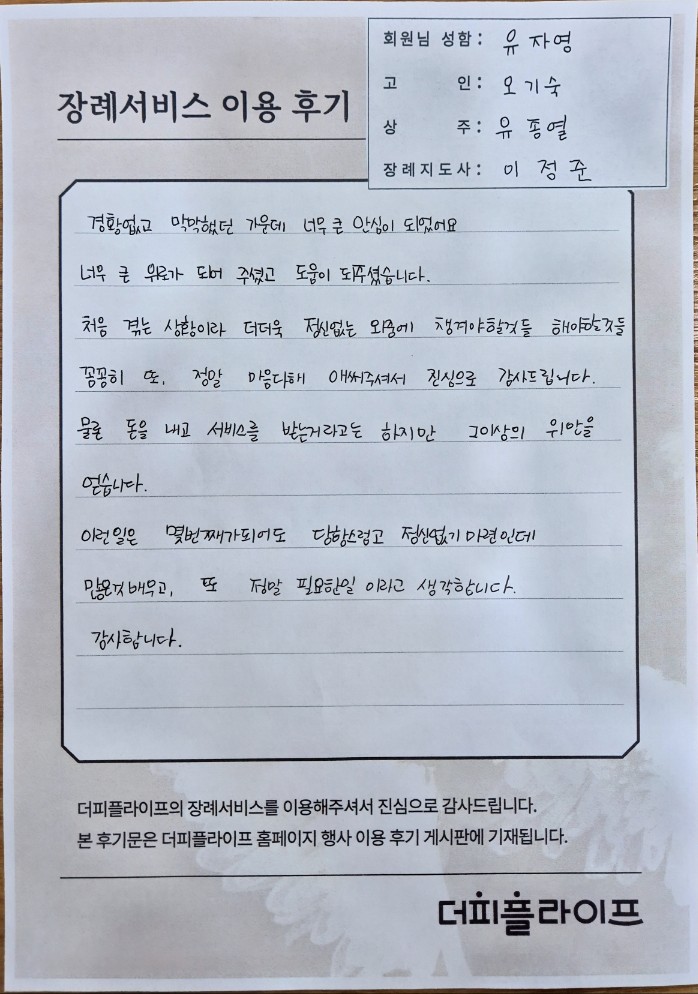 회원님 성함: 유자영
고 인: 오기숙
상 주: 유종열
장례지도사: 이정준
장례서비스 이용 후기
경황없고 막막했던 가운데 너무 큰 안심이 되었어요
너무 큰 위로가 되어 주셨고 도움이 되주셨습니다.
처음 겪는 상황이라 더더욱 정신없는 와중에 챙겨야할것들 해야할것들
꼼꼼히 또, 정말 마음다해 애써주셔서 진심으로 감사드립니다.
물론 돈을 내고 서비스를 받는거라고는 하지만 그이상의 위안을
얻습니다.
이런일은 몇번째가되어도 당황스럽고 정신없기 마련인데
많은것배우고, 또 정말 필요한일 이라고 생각합니다.
감사합니다.
더피플라이프의 장례서비스를 이용해주셔서 진심으로 감사드립니다.
본 후기문은 더피플라이프 홈페이지 행사 이용 후기 게시판에 기재됩니다.
더피플라이프